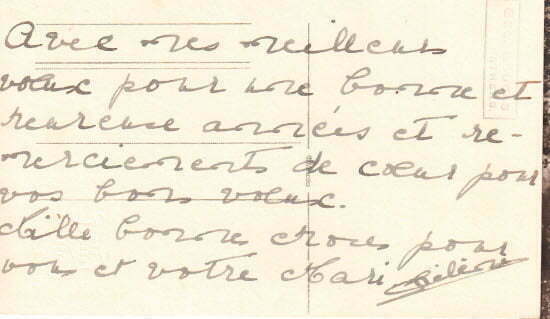 Avec mes meilleurs
vœux pour une bonne et
heureuse années et re-
merciements de cœur pour
vos bons vœux.
Mille bonne choses pour
vous et votre Mari